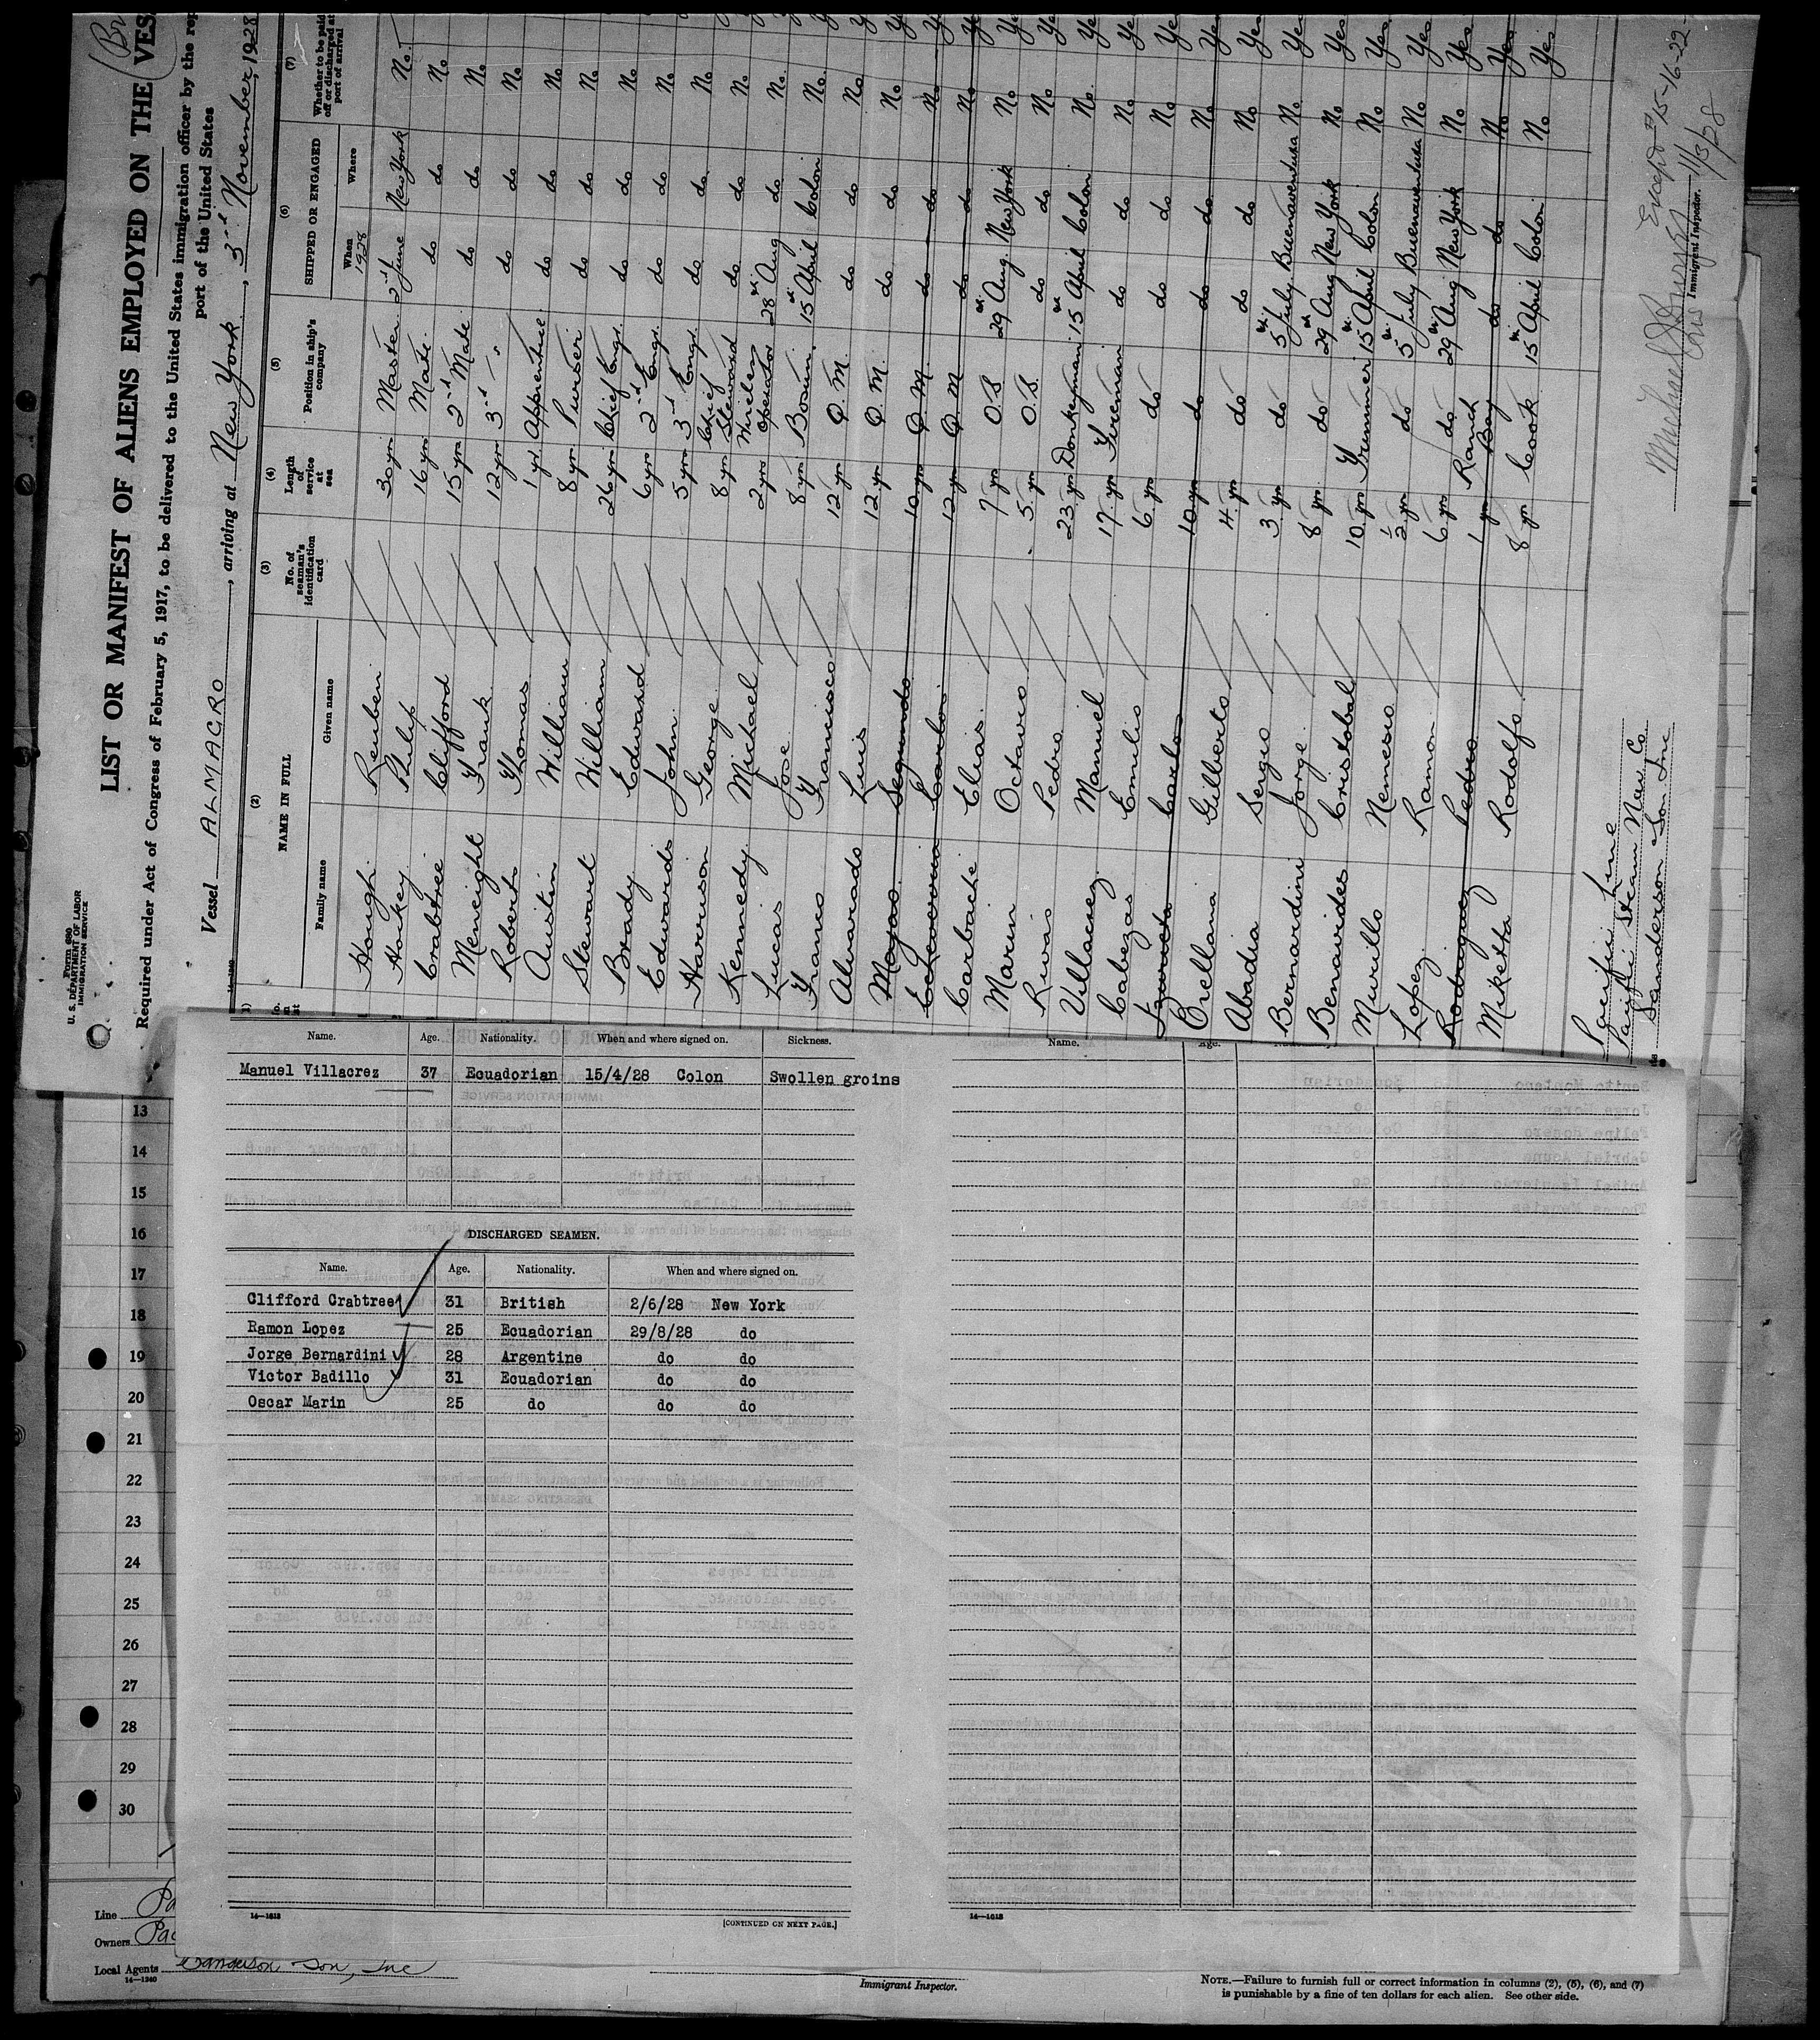 Form 680
U. S. DEPARTMENT OF LABOR
IMMIGRATION SERVICE
LIST OR MANIFEST OF ALIENS EMPLOYED ON THE VES
Required under Act of Congress of February 5, 1917, to be delivered to the United States immigration officer by the rep
port of the United States
Vessel ALMAGRO, arriving at New York, 3rd November, 1928
14-1240
(2) (3) (4) (5) (6) (7)
NAME IN FULL No. of seaman's identification card Length of service at sea Position in ship's company SHIPPED OR ENGAGED Whether to be paid off or discharged at port of arrival
Family name Given name When 1928 Where
Hough Reuben 30 yrs Master 2nd June New York No.
Hockey Philip 16 yrs Mate do do No
Crabtree Clifford 15 yrs 2nd Mate do do No
Meneight Frank 12 yrs 3rd " do do No
Roberts Thomas 1 yr Apprentice do do No
Austin William 8 yrs Purser do do No
Stewart William 26 yrs Chief Engr. do do No
Brady Edward 6 yrs 2nd Engr. do do No
Edwards John 5 yrs 3rd Engr. do do No
Harrison George 8 yrs Chief Steward do do No
Kennedy Michael 2 yrs Wireless Operator 28th Aug do No.
Lucas Jose 8 yrs Bosun 15th April Colon No.
Franco Francisco 12 yrs Q.M. do do No Yes
Alvarado Luis 12 yrs Q.M. do do No Yes
Segundo 10 yrs Q.M. do do No Yes
Carlos 12 yrs Q.M do do No Yes
Carbache Elias 7 yrs O.S 29th Aug. New York No Yes
Marin Octavio 5 yrs O.S. do do No Yes
Rivas Pedro 23 yrs Donkeyman 15th April Colon No. Yes
Villacrez Manuel 17 yrs Fireman do do No Yes
Cabezas Emilio 6 yrs do do do No Yes
Carlo 10 yrs do do do No Yes
Orellana Gilberto 4 yrs do do do No Yes
Abadia Sergio 3 yrs do 5th July Buenaventura No Yes
Bernardini Jorge 8 yrs do 29th Aug New York No Yes
Benavides Cristobal 10 yrs Trimmer 15th April Colon No Yes
Murillo Nemesio 1/2 yr do 5th July Buenaventura No Yes
Lopez Ramon 6 yrs do 29th Aug New York No Yes
Rodriguez Pedro 1 yr Ranch Boy do do No Yes
Miketta Rodolfo 8 yrs Cook 15th April Colon No Yes
Pacific Line
Pacific Steam Nav. Co
Sanderson & Son. Inc
Except # 15-16-22-
11/3/28
Immigrant Inspector.
Name. Age. Nationality. When and where signed on. Sickness.
Manuel Villacrez 37 Ecuadorian 15/4/28 Colon Swollen groins
DISCHARGED SEAMEN.
Name. Age. Nationality. When and where signed on.
Clifford Crabtree 31 British 2/6/28 New York
Ramon Lopez 25 Ecuadorian 29/8/28 do
Jorge Bernardini 28 Argentine do do
Victor Badillo 31 Ecuadorian do do
Oscar Marin 25 do do do
14-1613
[CONTINUED ON NEXT PAGE.]
Name. Age.
14-1613
13
14
15
16
17
18
19
20
21
22
23
24
25
26
27
28
29
30
Line Pa
Owners Pac
Local Agents Sanderson & Son, Inc
14-1240
Immigrant Inspector.
NOTE.—Failure to furnish full or correct information in columns (2), (5), (6), and (7)
is punishable by a fine of ten dollars for each alien. See other side.